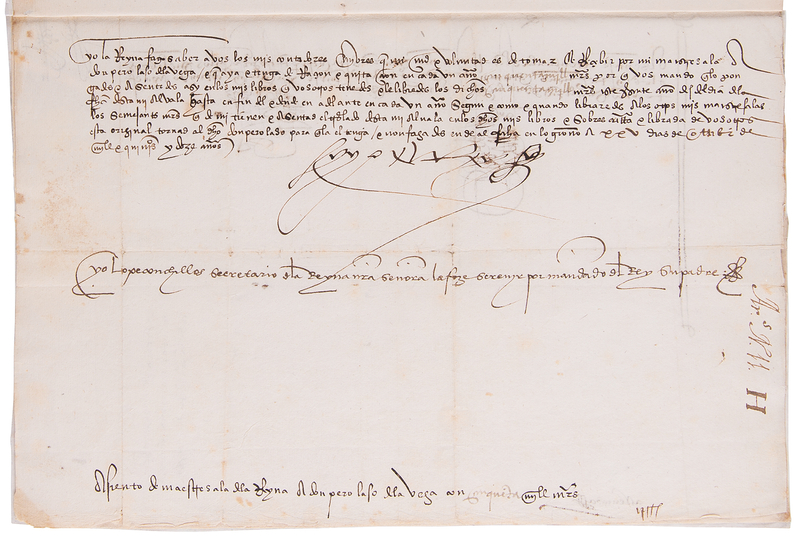 yo la Reyna fago saber a vos los mis contadores mayores que my md e voluntad es de tomar e Rescibir por mi maestresala A
don pero laso dela vega / e que aya e tenga de Racion e quitacion en cada un año çinquenta mill mrs por que vos mando que lo pon
gades e asentedes asy en los mis libros e vos otros tenedes e le libredes los dichos çinquenta mill mrs este presente año desde el dia dela
fecha desta mi aluala hasta en fin del e dende en adelante en cada un año segun e como e quando libraredes a los otros mis maestresalas
los semejantes mrs que de mi tienen e asentad el treslado desta mi aluala en los dichos mis libros e sobre escrita e librada de vosotros
esta original tornad al dicho don pero laso para que la el tenga / e non fagades ende al fecha en logroño A XXV dias de otubre de
mill e quinientos y doze años
yo el Rey
yo Lope conchillos secretario dela Reyna nra señora la fize screuir por mandado del Rey su padre
As. N. 11. H
Asiento de maestresala dela Reyna A don pero laso dela vega con çinquenta mill mrs